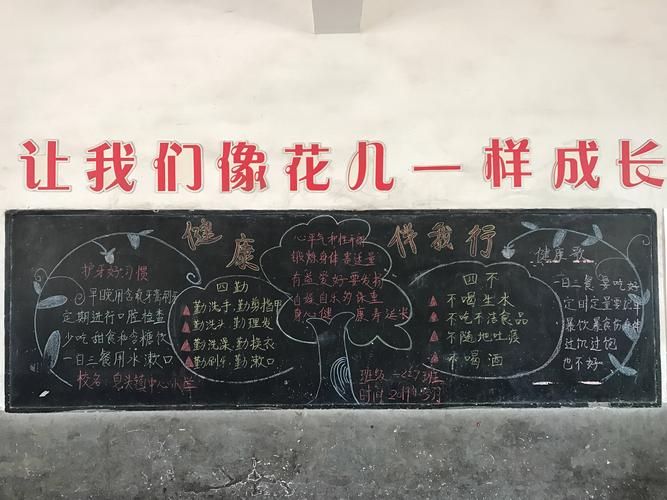 让我们像花儿一样成长
健康 伴我行
护牙好习惯
早晚用含氟牙膏刷牙
定期进行口腔检查
少吃甜食和含糖饮
一日三餐用水漱口
校名: 中心小学
四勤
勤洗手、勤剪指甲
勤洗头、勤理发
勤洗澡、勤换衣
勤刷牙、勤漱口
心平气和性
锻炼身体要适量
有益爱好要发扬
自娱自乐
身心健康寿延长
四不
不喝生水
不吃不洁食品
不随地吐痰
不喝酒
班级
时间
健康歌
一日三餐要吃好
定时定量
暴饮暴食伤身体
过饥过饱
也不好